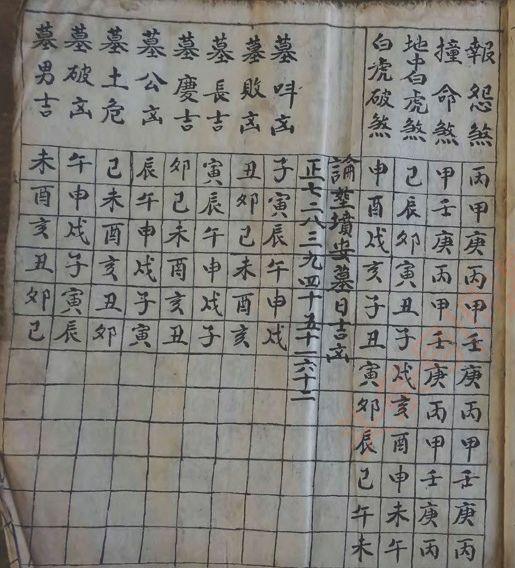 報怨煞 丙甲庚丙甲壬庚丙甲壬庚丙
撞命煞 甲壬庚丙甲壬庚丙甲壬庚丙
地中白虎煞 巳辰卯寅丑子戌亥酉申未午
白虎破煞 申酉戌亥子丑寅卯辰巳午未
論塟墳安墓日吉凶
正七二八三九四十五十一六十二
墓呌凶 子寅辰午申戌
墓敗凶 丑卯巳未酉亥
墓長吉 寅辰午申戌子
墓慶吉 卯巳未酉亥丑
墓公凶 辰午申戌子寅
墓土危 巳未酉亥丑卯
墓破凶 午申戌子寅辰
墓男吉 未酉亥丑卯巳